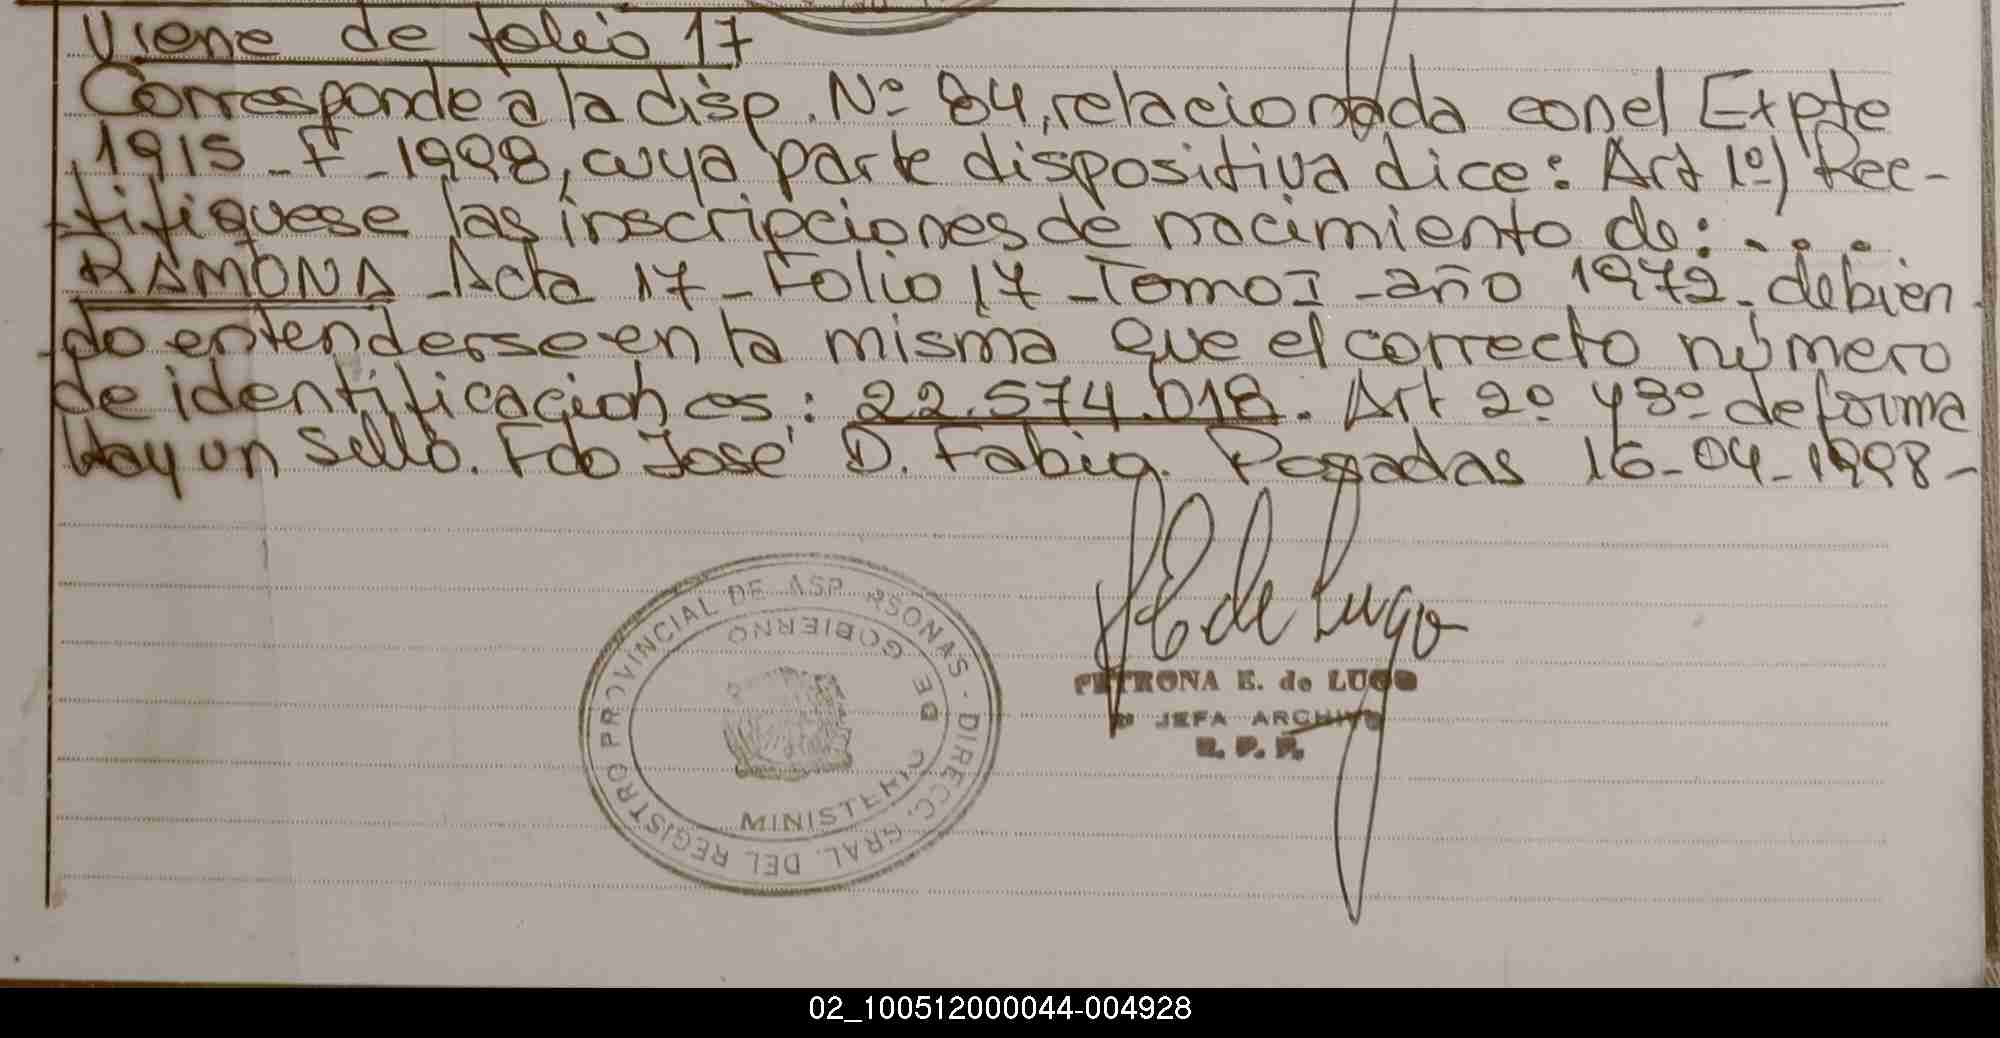 Viene de folio 17
Corresponde a la disp. Nº 84, relacionada con el Expte
1915-F-1998, cuya parte dispositiva dice: Art 1º) Rec-
-tifiquese las inscripciones de nacimiento de: . . .
RAMONA - Acta 17 - Folio 17 - Tomo I - año 1972 - debien-
-do entenderse en la misma que el correcto número
de identificacion es: 22.574.018. Art 2º y 3º de forma
Hay un Sello. Fdo José D. Fabig. Posadas 16-04-1998-
PE de Lugo
PETRONA E. de LUGO
JEFA ARCHIVO
R. P. P.
DIRECC. GRAL. DEL REGISTRO PROVINCIAL DE RSONAS
MINISTERIO DE GOBIERNO
02_100512000044-004928